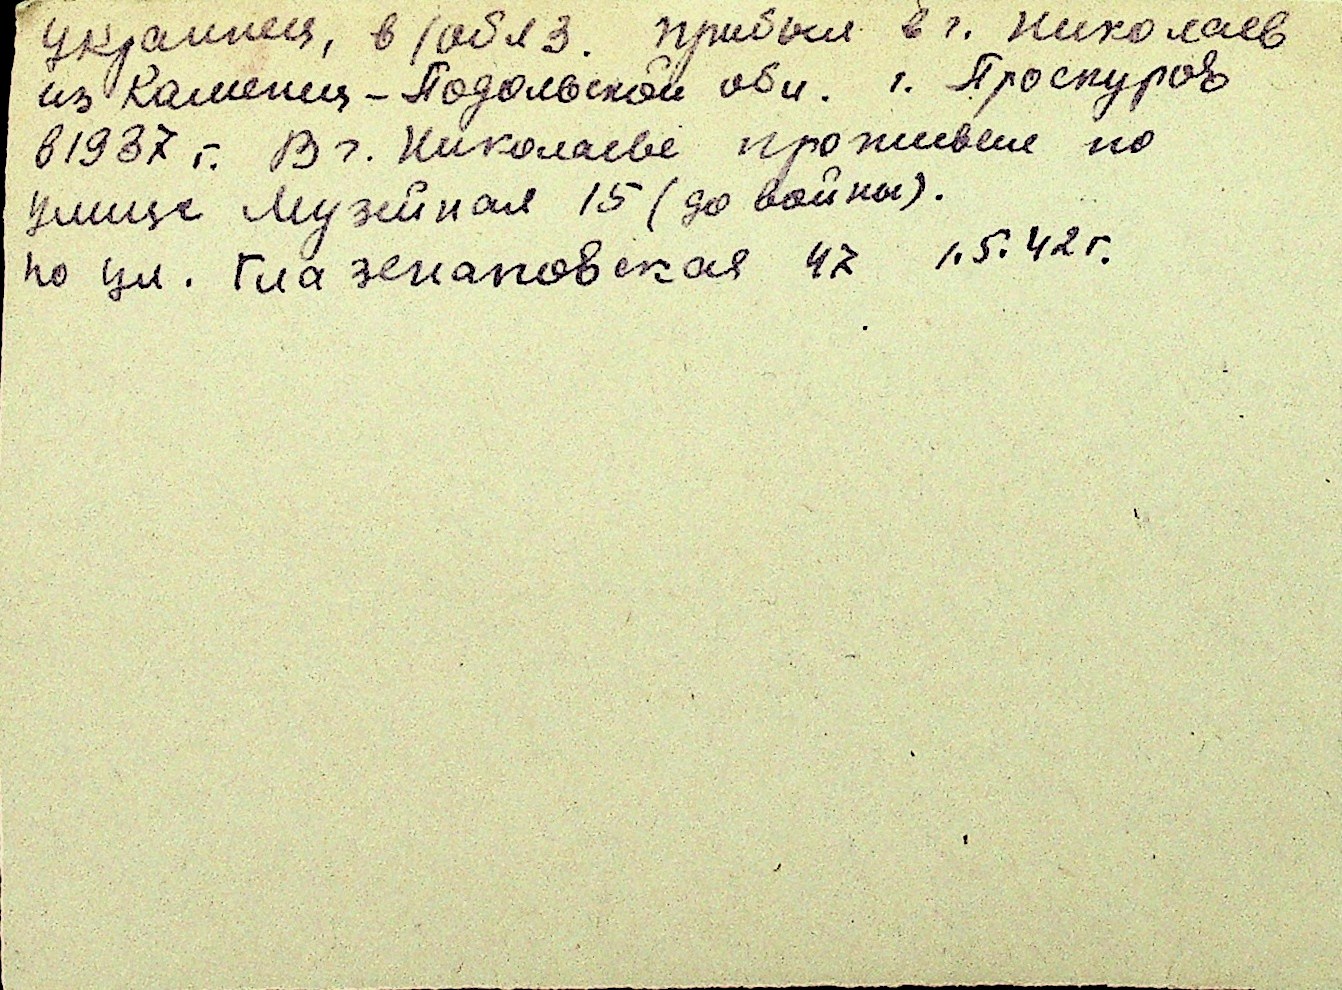 Украинец, в/обяз. прибыл в г. Николаев
из Каменец-Подольской обл. г. Проскуров
в 1937 г. В г. Николаеве проживал по
улице Музейная 15 (до войны).
по ул. Глазенаповская 47 1.5.42 г.